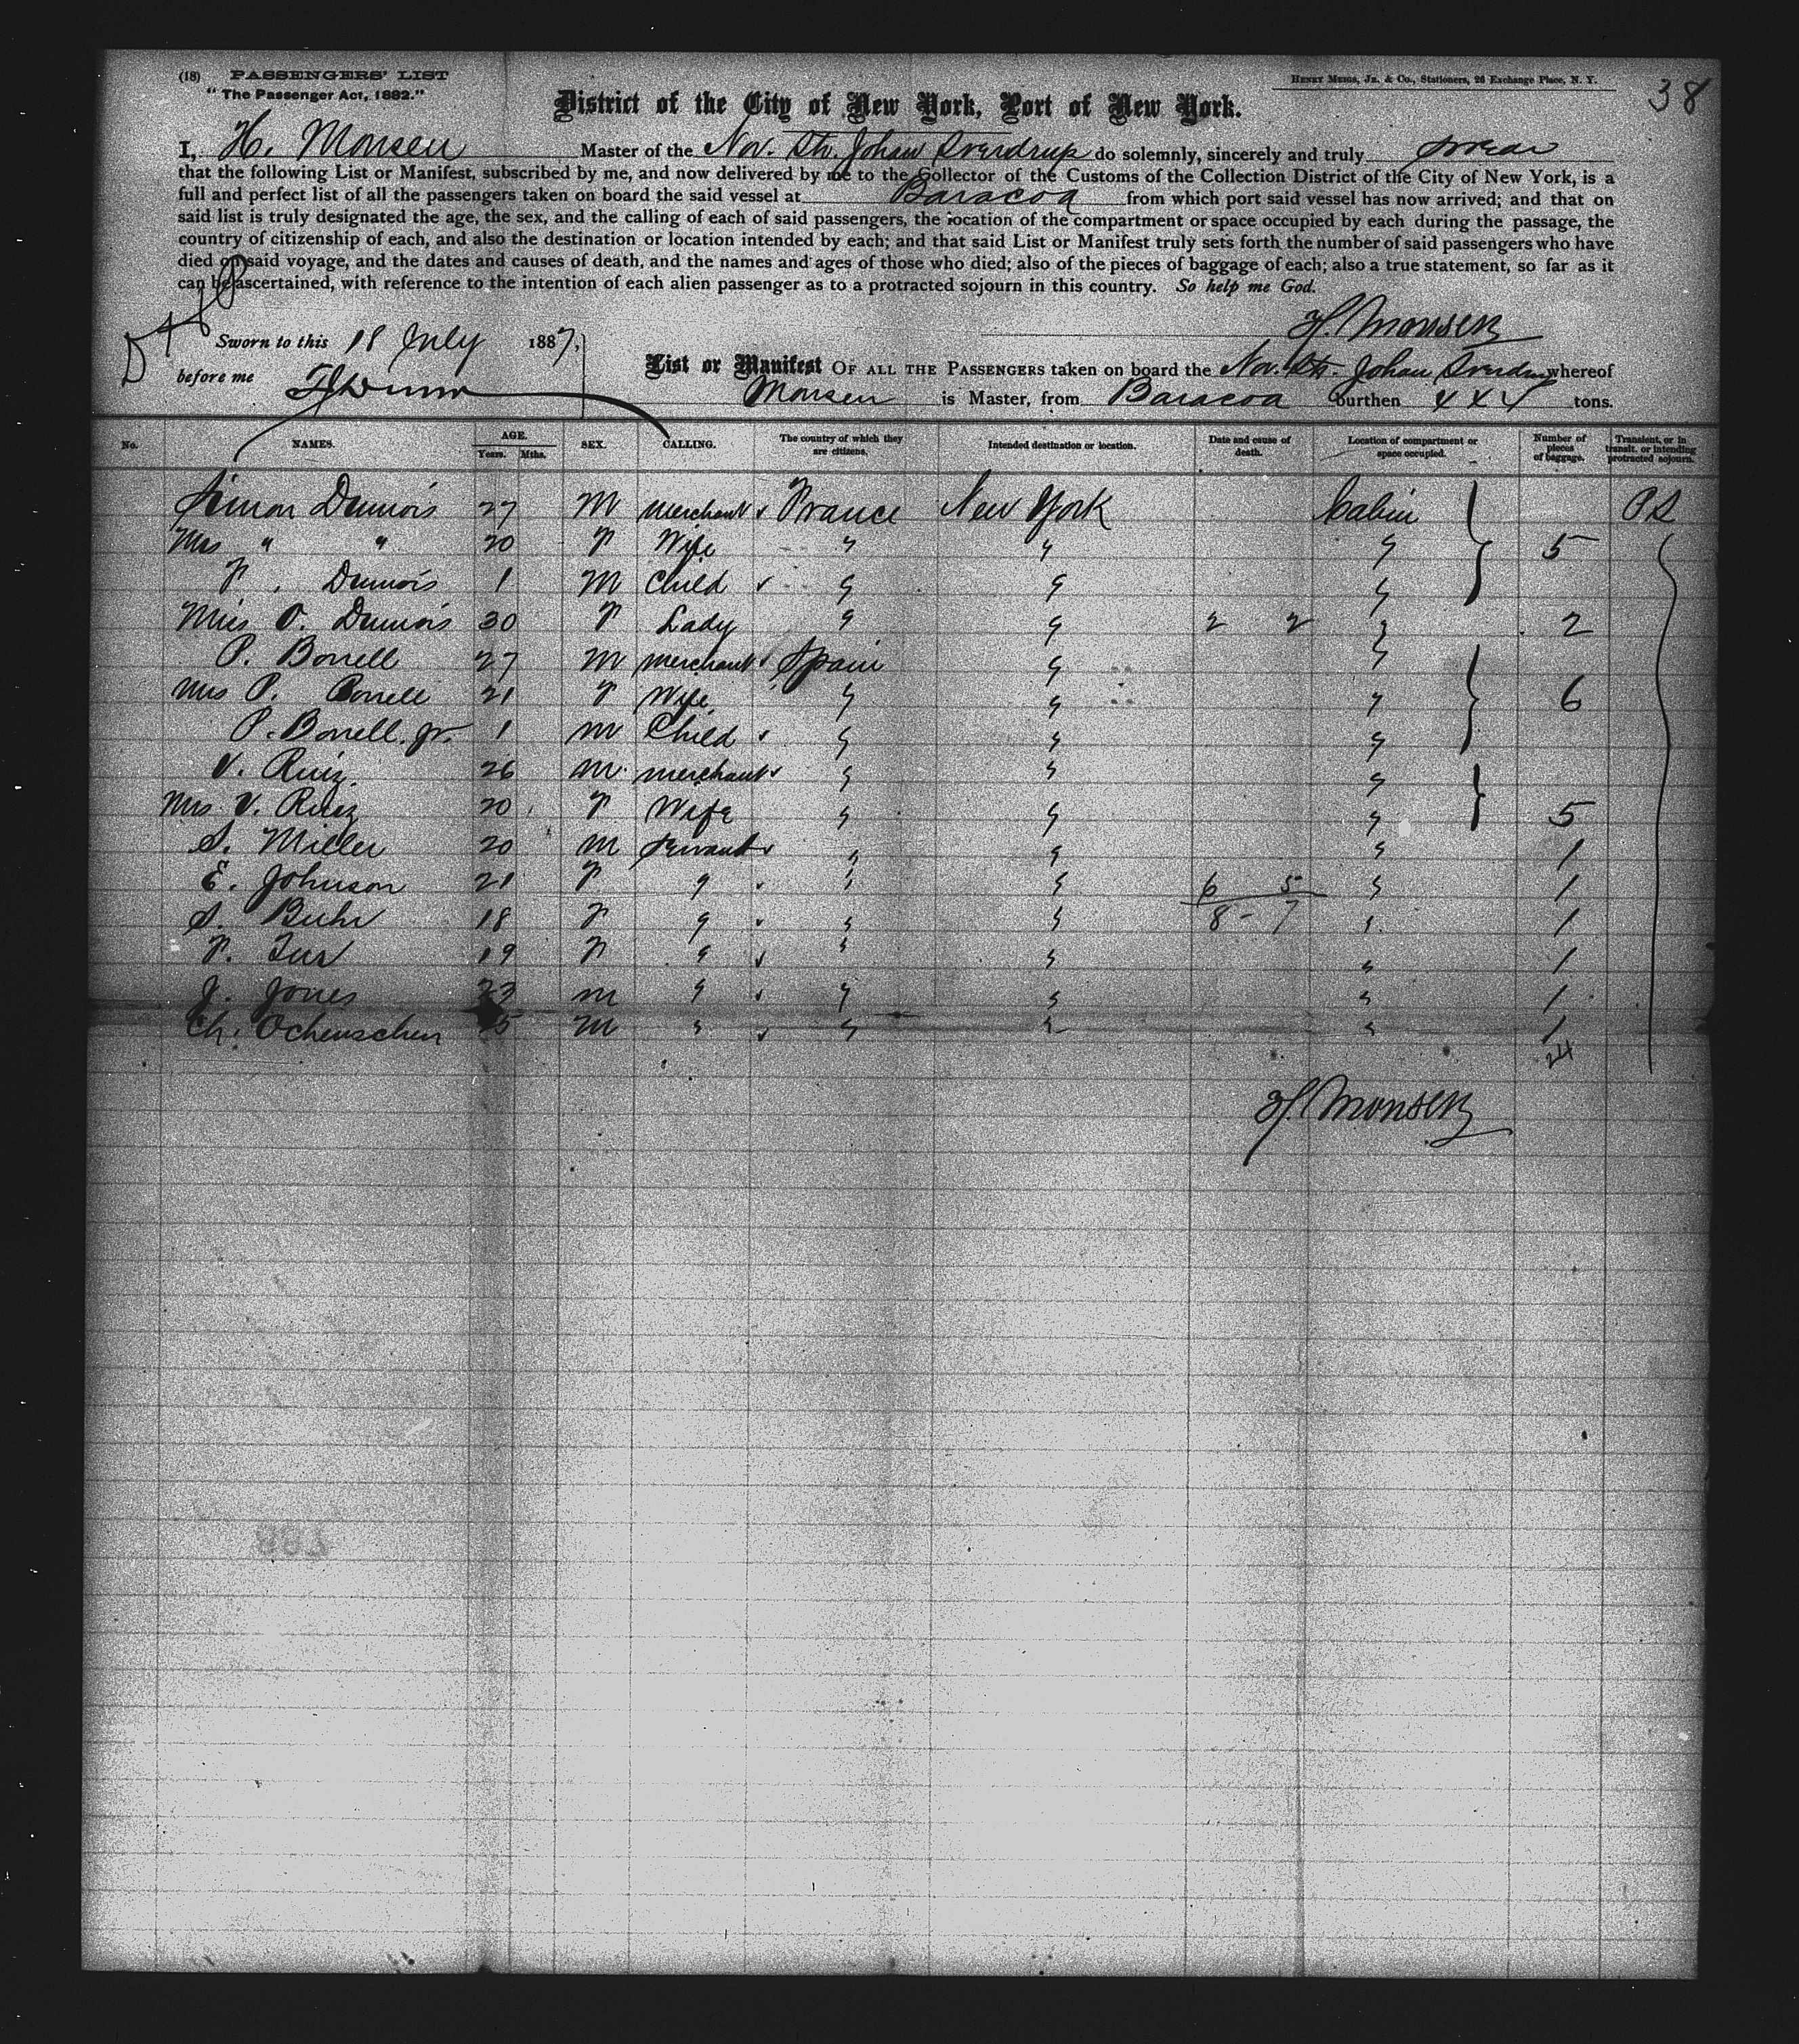 (18) PASSENGERS' LIST
"The Passenger Act, 1882."
HENRY MEIGS, JR. & CO., Stationers, 26 Exchange Place, N. Y.
38
District of the City of New York, Port of New York.
I, H. Monsen Master of the Nov. Str. Johan Sverdrup do solemnly, sincerely and truly swear
that the following List or Manifest, subscribed by me, and now delivered by me to the Collector of the Customs of the Collection District of the City of New York, is a
full and perfect list of all the passengers taken on board the said vessel at Baracoa from which port said vessel has now arrived; and that on
said list is truly designated the age, the sex, and the calling of each of said passengers, the location of the compartment or space occupied by each during the passage, the
country of citizenship of each, and also the destination or location intended by each; and that said List or Manifest truly sets forth the number of said passengers who have
died on said voyage, and the dates and causes of death, and the names and ages of those who died; also of the pieces of baggage of each; also a true statement, so far as it
can be ascertained, with reference to the intention of each alien passenger as to a protracted sojourn in this country. So help me God.
H. Monsen
Sworn to this 18 July 1887,
before me
List or Manifest OF ALL THE PASSENGERS taken on board the Nov. Str. Johan Sverdrup whereof
Monsen is Master, from Baracoa burthen tons.
No. NAMES. AGE. Years. Mths. SEX. CALLING. The country of which they are citizens. Intended destination or location. Date and cause of death. Location of compartment or space occupied. Number of pieces of baggage. Transient, or in transit, or intending protracted sojourn.
Simon Dumois 27 M Merchant France New York Cabin PS
Mrs " " 20 F Wife " " " 5
F. Dumois 1 M Child " " "
Miss O. Dumois 30 F Lady " " 2 2 " 2
P. Borrell 27 M merchant Spain " "
Mrs P. Borrell 21 F Wife " " " 6
P. Borrell. jr. 1 M Child " " "
V. Ruiz. 26 M merchant " " "
Mrs V. Ruiz 20 F Wife " " " 5
S. Miller 20 M Servant " " " 1
E. Johnson 21 F " " " 6 5 " 1
S. Buhr 18 F " " " 8 - 7 " 1
F. 19 F " " " " 1
J. Jones 23 M " " " " 1
Ch. Ochenschen M " " " " 1
24
H. Monsen